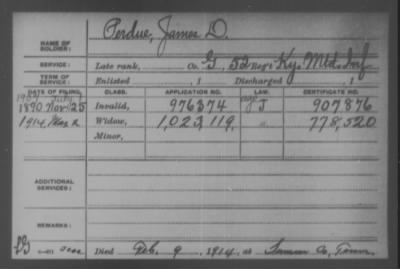 Perdue, James D.
NAME OF
SOLDIER:
SERVICE: Late rank, Co. G, 52 Reg't Ky. Mtd. Inf.
TERM OF
SERVICE: Enlisted , 1 Discharged , 1
DATE OF FILING. CLASS. APPLICATION NO. LAW. CERTIFICATE NO.
1907 July
1890 Nov. 25 Invalid, 976374 J 907876
1914, Mar 2 Widow, 1,023,119, 778,520
Minor,
ADDITIONAL
SERVICES:
REMARKS:
Died Feb. 9, 1914, at Sumner Co, Tenn.